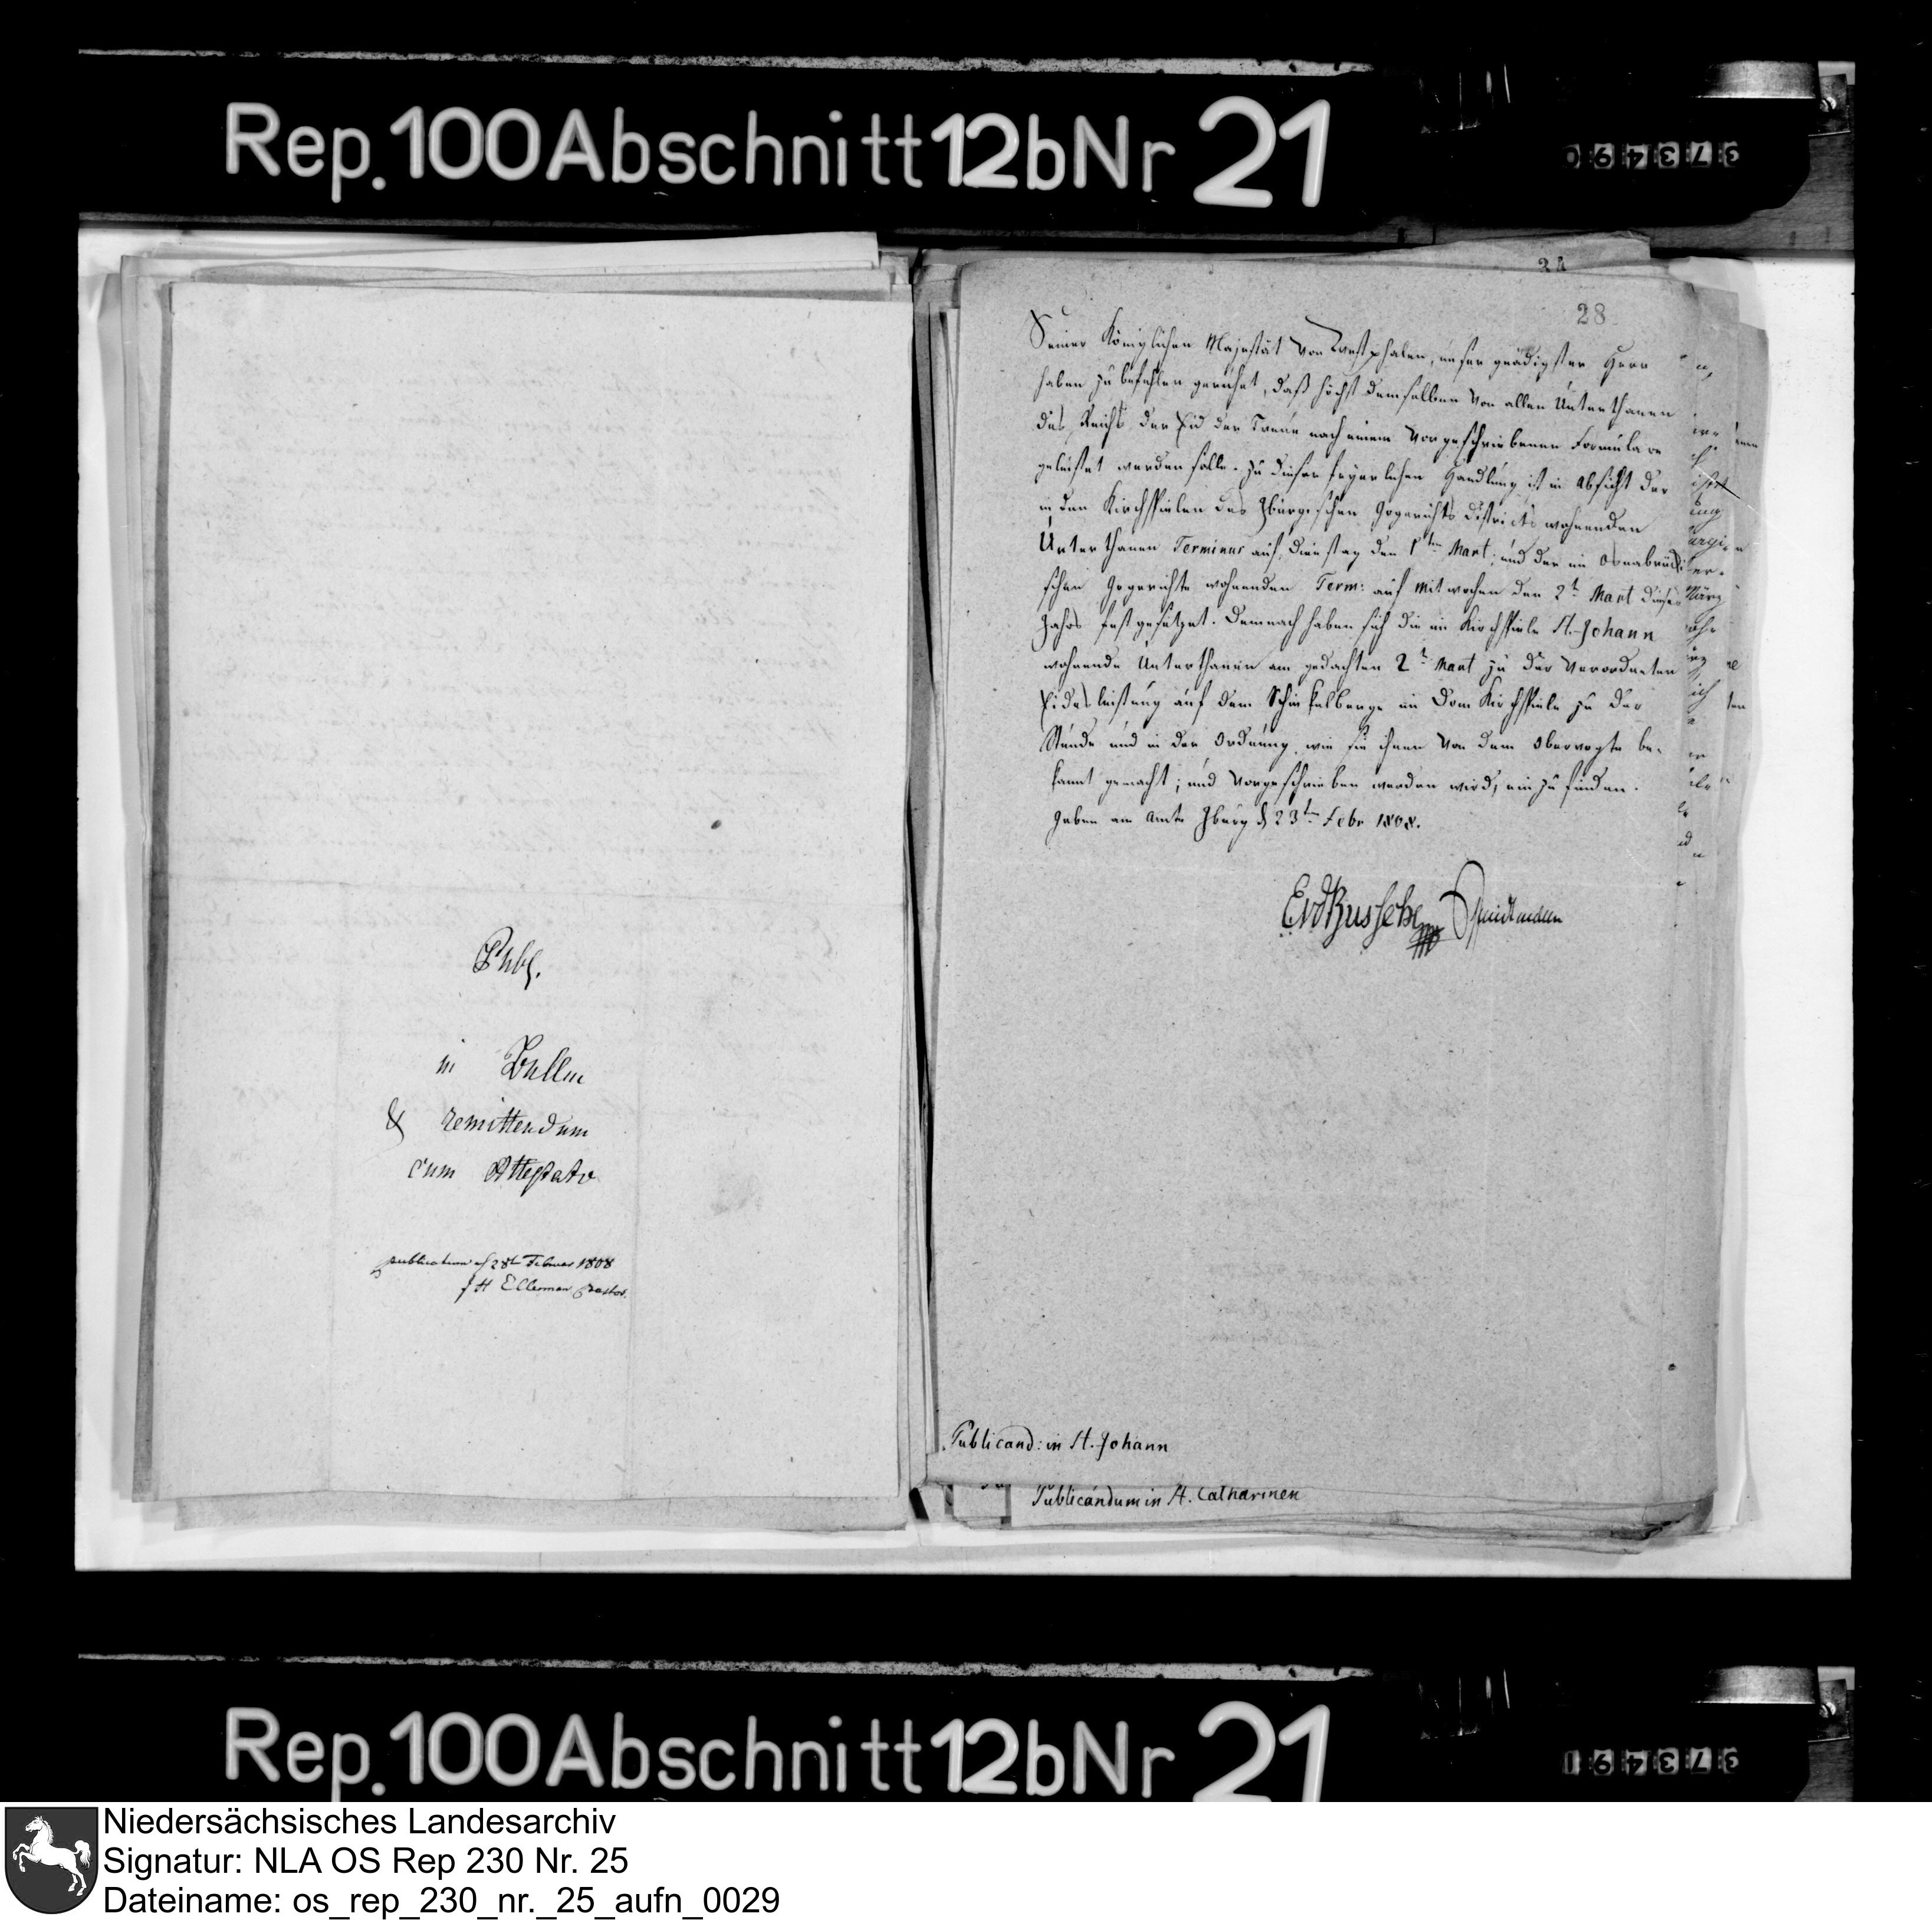 Rep. 100 Abschnitt 12b Nr 21
373490
Publ.
in
& remittendum
cum Attestato
publicatum d 28t Februar 1808
Ellerman Pastor.
28
Seiner Königlichen Majestät von Westphalen, unser gnädigster Herr
haben zu befehlen geruhet, daß höchst demselben von allen Unterthanen
des Reichs der Eid der Treue nach einem vorgeschriebenen Formulare
geleistet werden solle. Zu dieser feyerlichen Handlung ist in Absicht der
in den Kirchspielen des Iburgischen Gogerichts Districts wohnenden
Unterthanen Terminus auf Dienstag den 1ten Mart. und der im Osnabrücki
schen Gogerichte wohnenden Term: auf Mitwochen den 2t Mart dieses
Jahrs festgesetzet. Demnach haben sich die im Kirchspiele St. Johann
wohnende Unterthanen am gedachten 2t Mart zu der verordneten
Eidesleistung auf dem Schinkelberge im Dom Kirchspiele zu der
Stunde und in der Ordnung, wie sie ihnen von dem Obervogte be-
kannt gemacht, und vorgeschrieben werden wird, einzufinden.
Geben am Amte Iburg d 23ten Febr 1808.
EvdBussche
Publicand: in St. Johann
Publicandum in St. Catharinen
Rep. 100 Abschnitt 12b Nr 21
373491
Niedersächsisches Landesarchiv
Signatur: NLA OS Rep 230 Nr. 25
Dateiname: os_rep_230_nr._25_aufn_0029